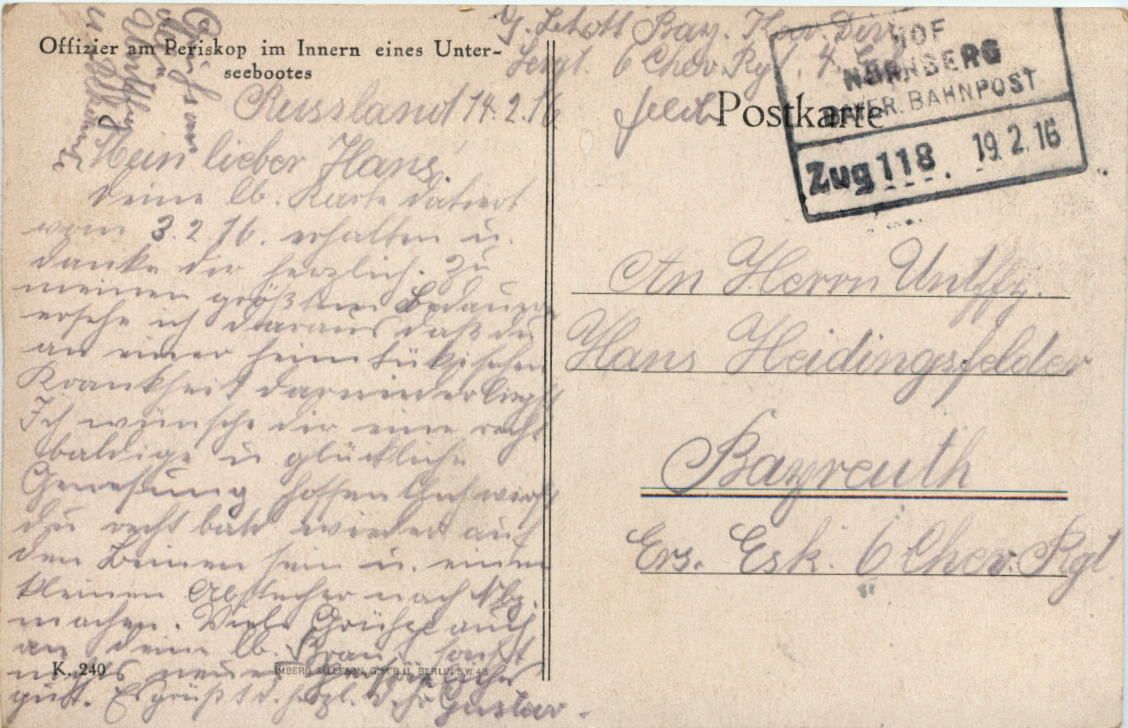 Offizier am Periskop im Innern eines Unter-
seebootes
Russland 14.2.16
Mein lieber Hans!
Deine lb. Karte datiert
vom 3.2.16. erhalten u.
danke dir herzlich. Zu
meinen größtem Bedauern
ersehe ich daraus daß du
an einer heimtükischen
Krankheit darniederliegst
Ich wünsche dir eine recht
baldige u glückliche
Genesung hoffentlich wirst
du recht bald wieder auf
den Beinen sein u. einen
kleinen Abstecher nach Nbg.
machen. Viele Grüße auch
an deine lb. Frau, sonst
nichts neues
gut. Es grüßt d. herzl. Gustav.
K. 240
IMBERG & LEFSON, G.M.B.H., BERLIN S.W. 48
Bay. Kav. Div.
6 Chev. Rgt. 4.
Postkarte
HOF
NÜRNBERG
BAYER. BAHNPOST
Zug 118 19.2.16
An Herrn Untffz.
Hans Heidingsfelder
Bayreuth
Ers. Esk. 6 Chev. Rgt.